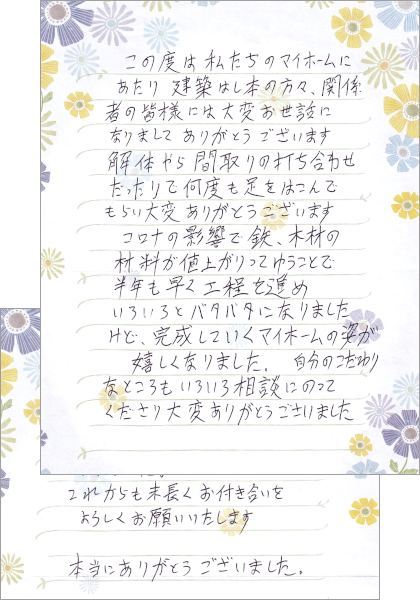 この度は私たちのマイホームに
あたり 建築はし本の方々、関係
者の皆様には大変お世話に
なりまして ありがとうございます
解体やら間取りの打ち合わせ
だったりで何度も足をはこんで
もらい大変 ありがとうございます
コロナの影響で鉄、木材の
材料が値上がりってゆうことで
半年も早く工程を進め
いろいろとバタバタになりました
けど、完成していくマイホームの姿が
嬉しくなりました。 自分のこだわり
なところもいろいろ相談にのって
くださり大変ありがとうございました
これからも末長くお付き合いを
よろしくお願いいたします
本当にありがとうございました。